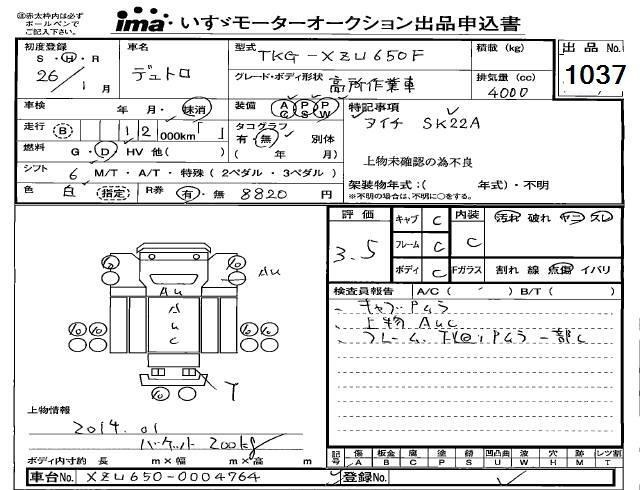 ㊟赤太枠内は必ず
ボールペンで
ご記入下さい。
ima いすゞモーターオークション出品申込書
初度登録 車名 型式 TKG-XZU650F 積載 (kg) 出品No.
S・H・R
26/1月 デュトロ グレード・ボディ形状 高所作業車 排気量 (cc) 4000 1037
車検 年・月・抹消 装備 AC PS PW 特記事項
走行 B 12 000km「 」 タコグラフ 有・無 別体 タイチ SK22A
燃料 G・D HV 他( ) ( 年 月) 上物未確認の為不良
シフト 6 M/T・A/T・特殊 (2ペダル・3ペダル) 架装物年式:( 年式)・不明
色 白 指定 R券 有・無 8820 円 ※不明の場合は、不明に○をする。
評価 キャブ C 内装 汚れ 破れ ヤニ スレ
3.5 フレーム C C
ボディ C Fガラス 割れ 線 点傷 イバリ
検査員報告 A/C ( ) B/T ( )
キャブPムラ
上物 AUC
フレーム、下回りPムラ 一部C
AU
AU
A
U
C
10 10 10 10
10
T
上物情報
2014.01
バケット 200kg
ボディ内寸約 長 m×幅 m×高 m
記号 傷 板金 腐 塗 顔 凹凸曲 波 穴 跡 レツ割
A B C P S U W H M T
車台No. XZU650-0004764 登録No.